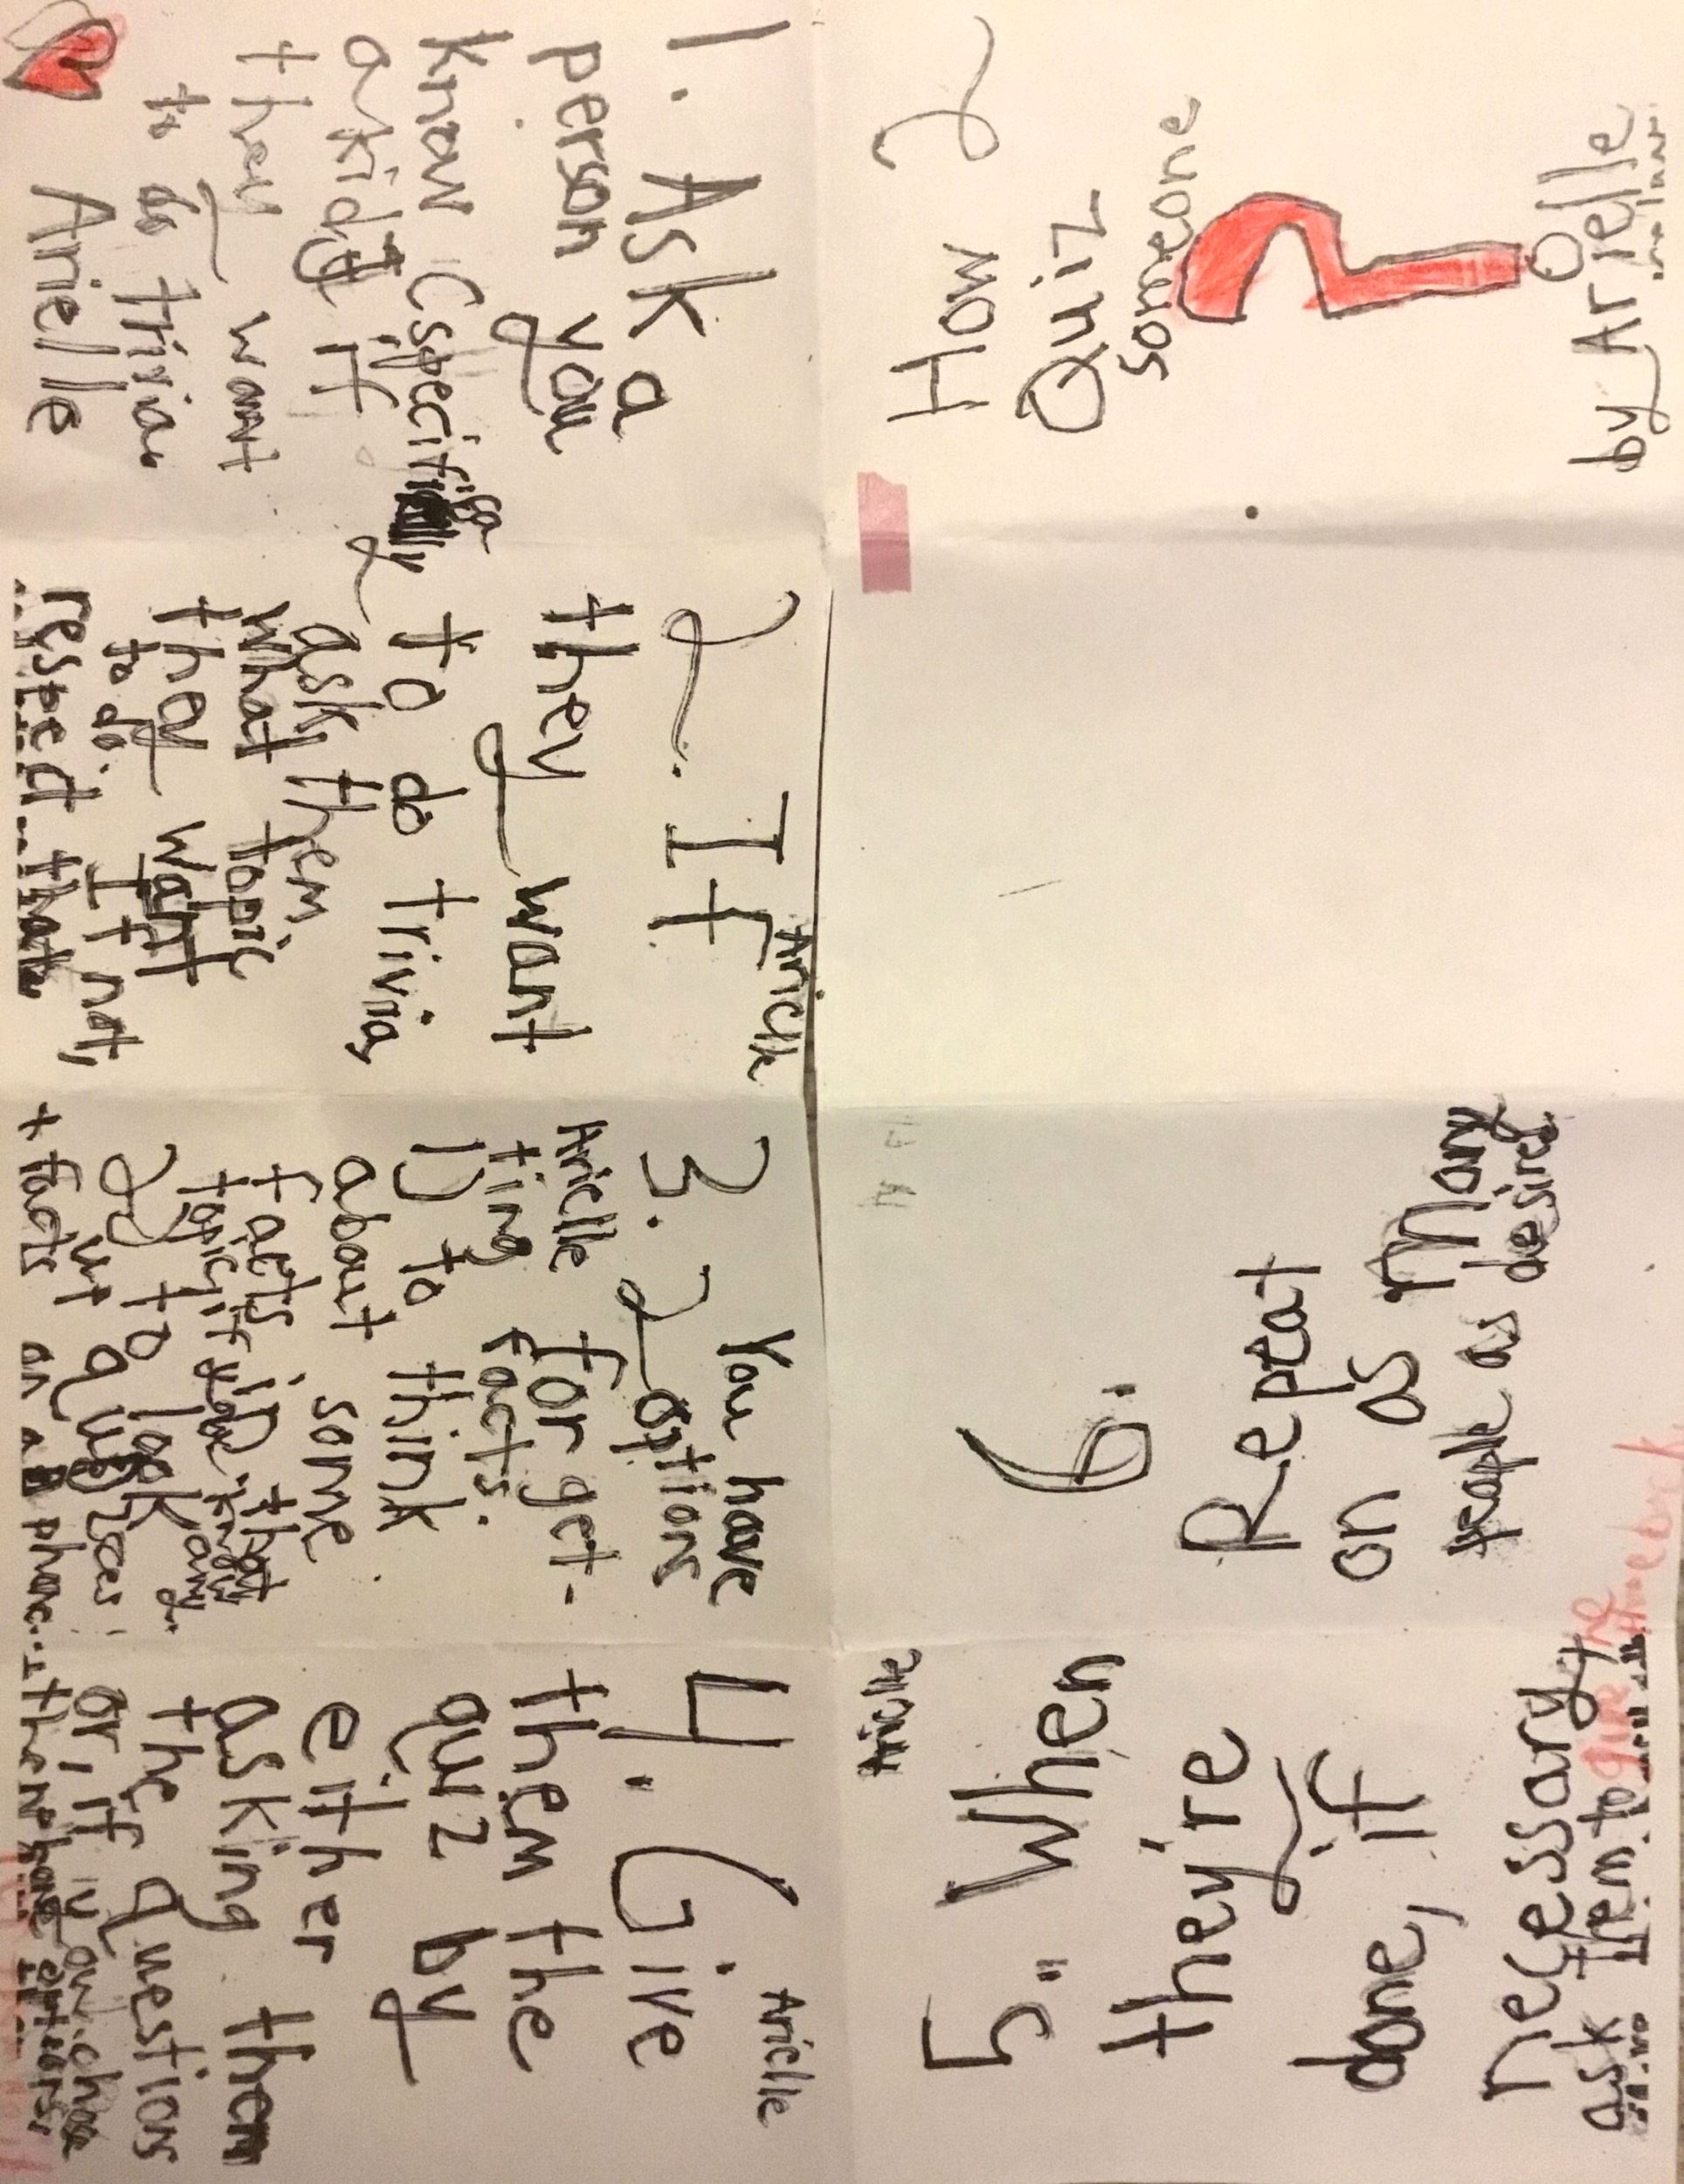 How 2
Quiz
someone
by Arielle
1. Ask a
person you
know (specifica
lly
a kid) if
they want
to do trivia.
Arielle
Arielle
2. If
they want
to do trivia,
ask them
what topic
they want
to do. If not,
respect that.
3. You have
2 options
Arielle for get-
ting facts.
1) to think
about some
facts in that
topic, if you know any.
2) to look
up quizzes
+ facts on a phone...
Arielle
4. Give
them the
quiz by
either
asking them
the questions
or, if you chose
the phone option,
Arielle
5. When
they're
done, if
necessary,
ask them to
6.
Repeat
on as many
people as desired